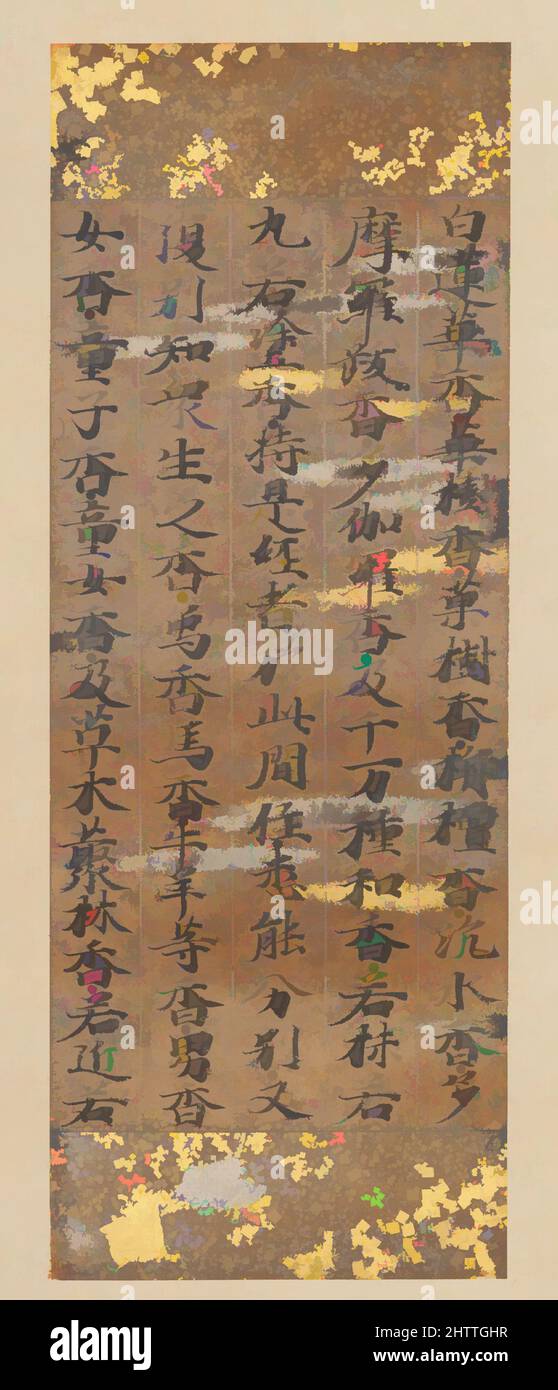 白蓮華香華樹香菓樹香栴檀香沉水香多
摩羅跋香多伽羅香及千万種和香若抹若
丸若塗香持是經者於此間住悉能分別又
復別知衆生之香象香馬香牛羊等香男香
女香童子香童女香及草木藂林香若近若
alamy
alamy
Image ID: 2HTTGHR
www.alamy.com